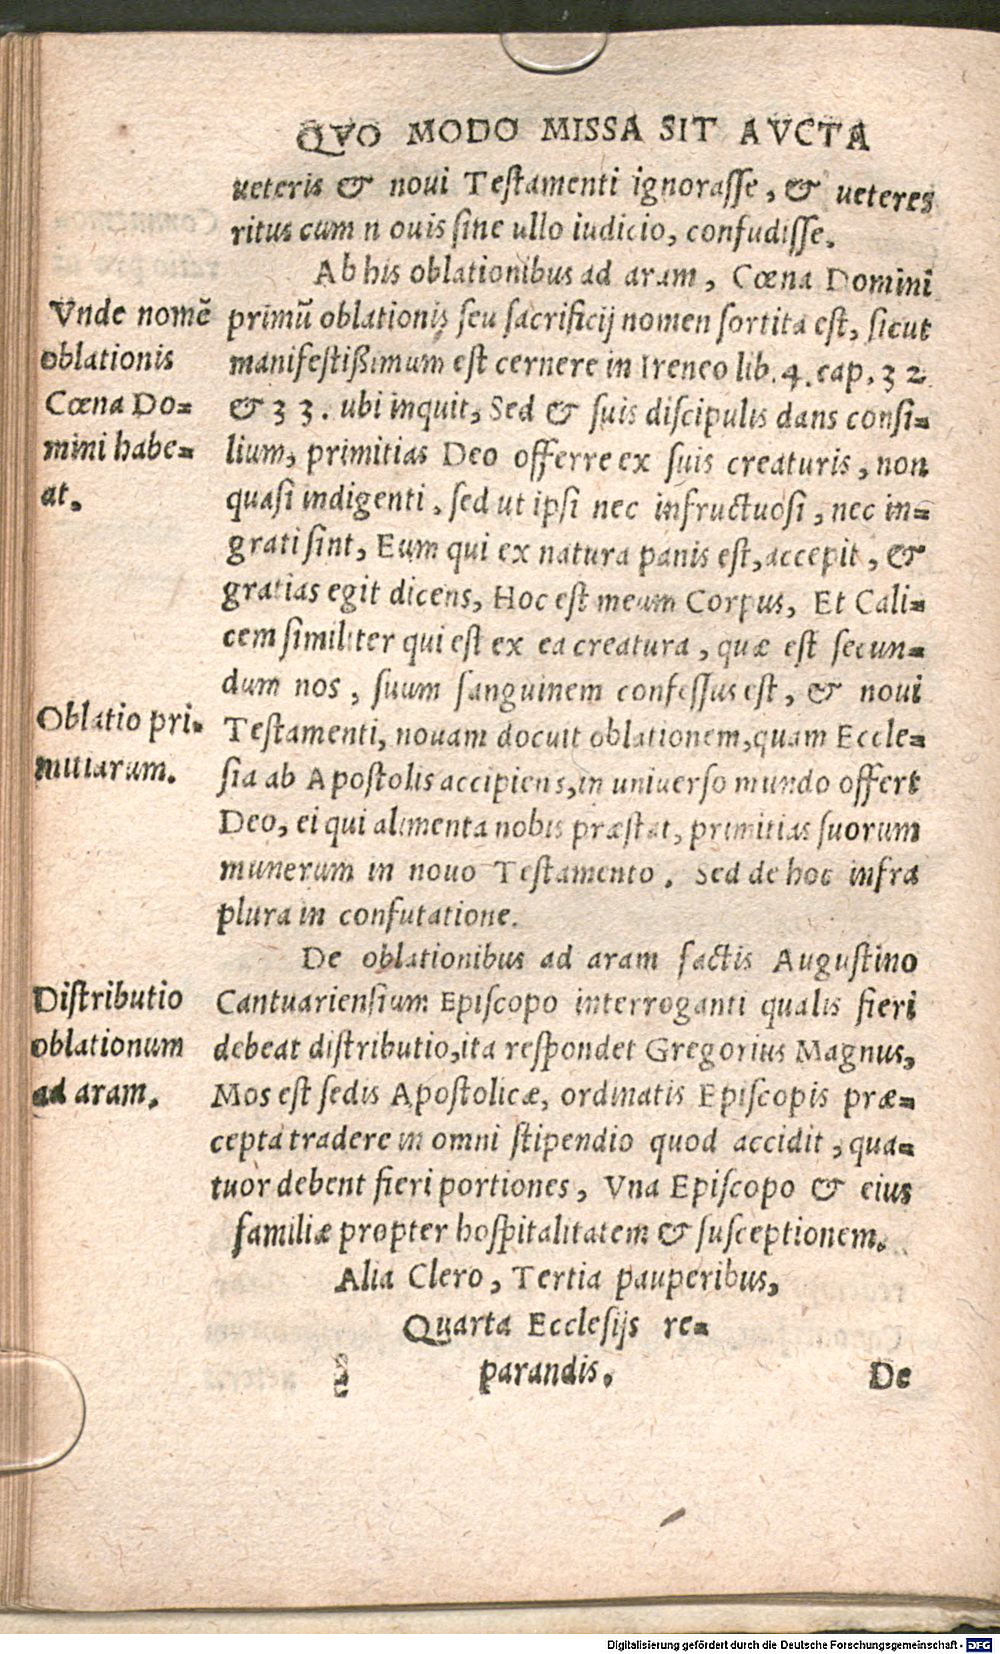 QVO MODO MISSA SIT AVCTA
ueteris & noui Testamenti ignorasse, & ueteres
ritus cum n ouis sine ullo iudicio, confudisse.
Ab his oblationibus ad aram, Cœna Domini
Vnde nomē
oblationis
Cœna Do=
mini habe=
at.
primū oblationis seu sacrificij nomen sortita est, sicut
manifestißimum est cernere in Ireneo lib. 4. cap. 32
& 33. ubi inquit, Sed & suis discipulis dans consi=
lium, primitias Deo offerre ex suis creaturis, non
quasi indigenti, sed ut ipsi nec infructuosi, nec in=
grati sint, Eum qui ex natura panis est, accepit, &
gratias egit dicens, Hoc est meum Corpus, Et Cali=
cem similiter qui est ex ea creatura, quæ est secun=
dum nos, suum sanguinem confessus est, & noui
Oblatio pri=
mitiarum.
Testamenti, nouam docuit oblationem, quam Eccle=
sia ab Apostolis accipiens, in uniuerso mundo offert
Deo, ei qui alimenta nobis præstat, primitias suorum
munerum in nouo Testamento. Sed de hoc infra
plura in confutatione.
De oblationibus ad aram factis Augustino
Distributio
oblationum
ad aram.
Cantuariensium Episcopo interroganti qualis fieri
debeat distributio, ita respondet Gregorius Magnus,
Mos est sedis Apostolicæ, ordinatis Episcopis præ=
cepta tradere in omni stipendio quod accidit, qua=
tuor debent fieri portiones, Vna Episcopo & eius
familiæ propter hospitalitatem & susceptionem.
Alia Clero, Tertia pauperibus,
Quarta Ecclesijs re=
parandis.
De
Digitalisierung gefördert durch die Deutsche Forschungsgemeinschaft - DFG